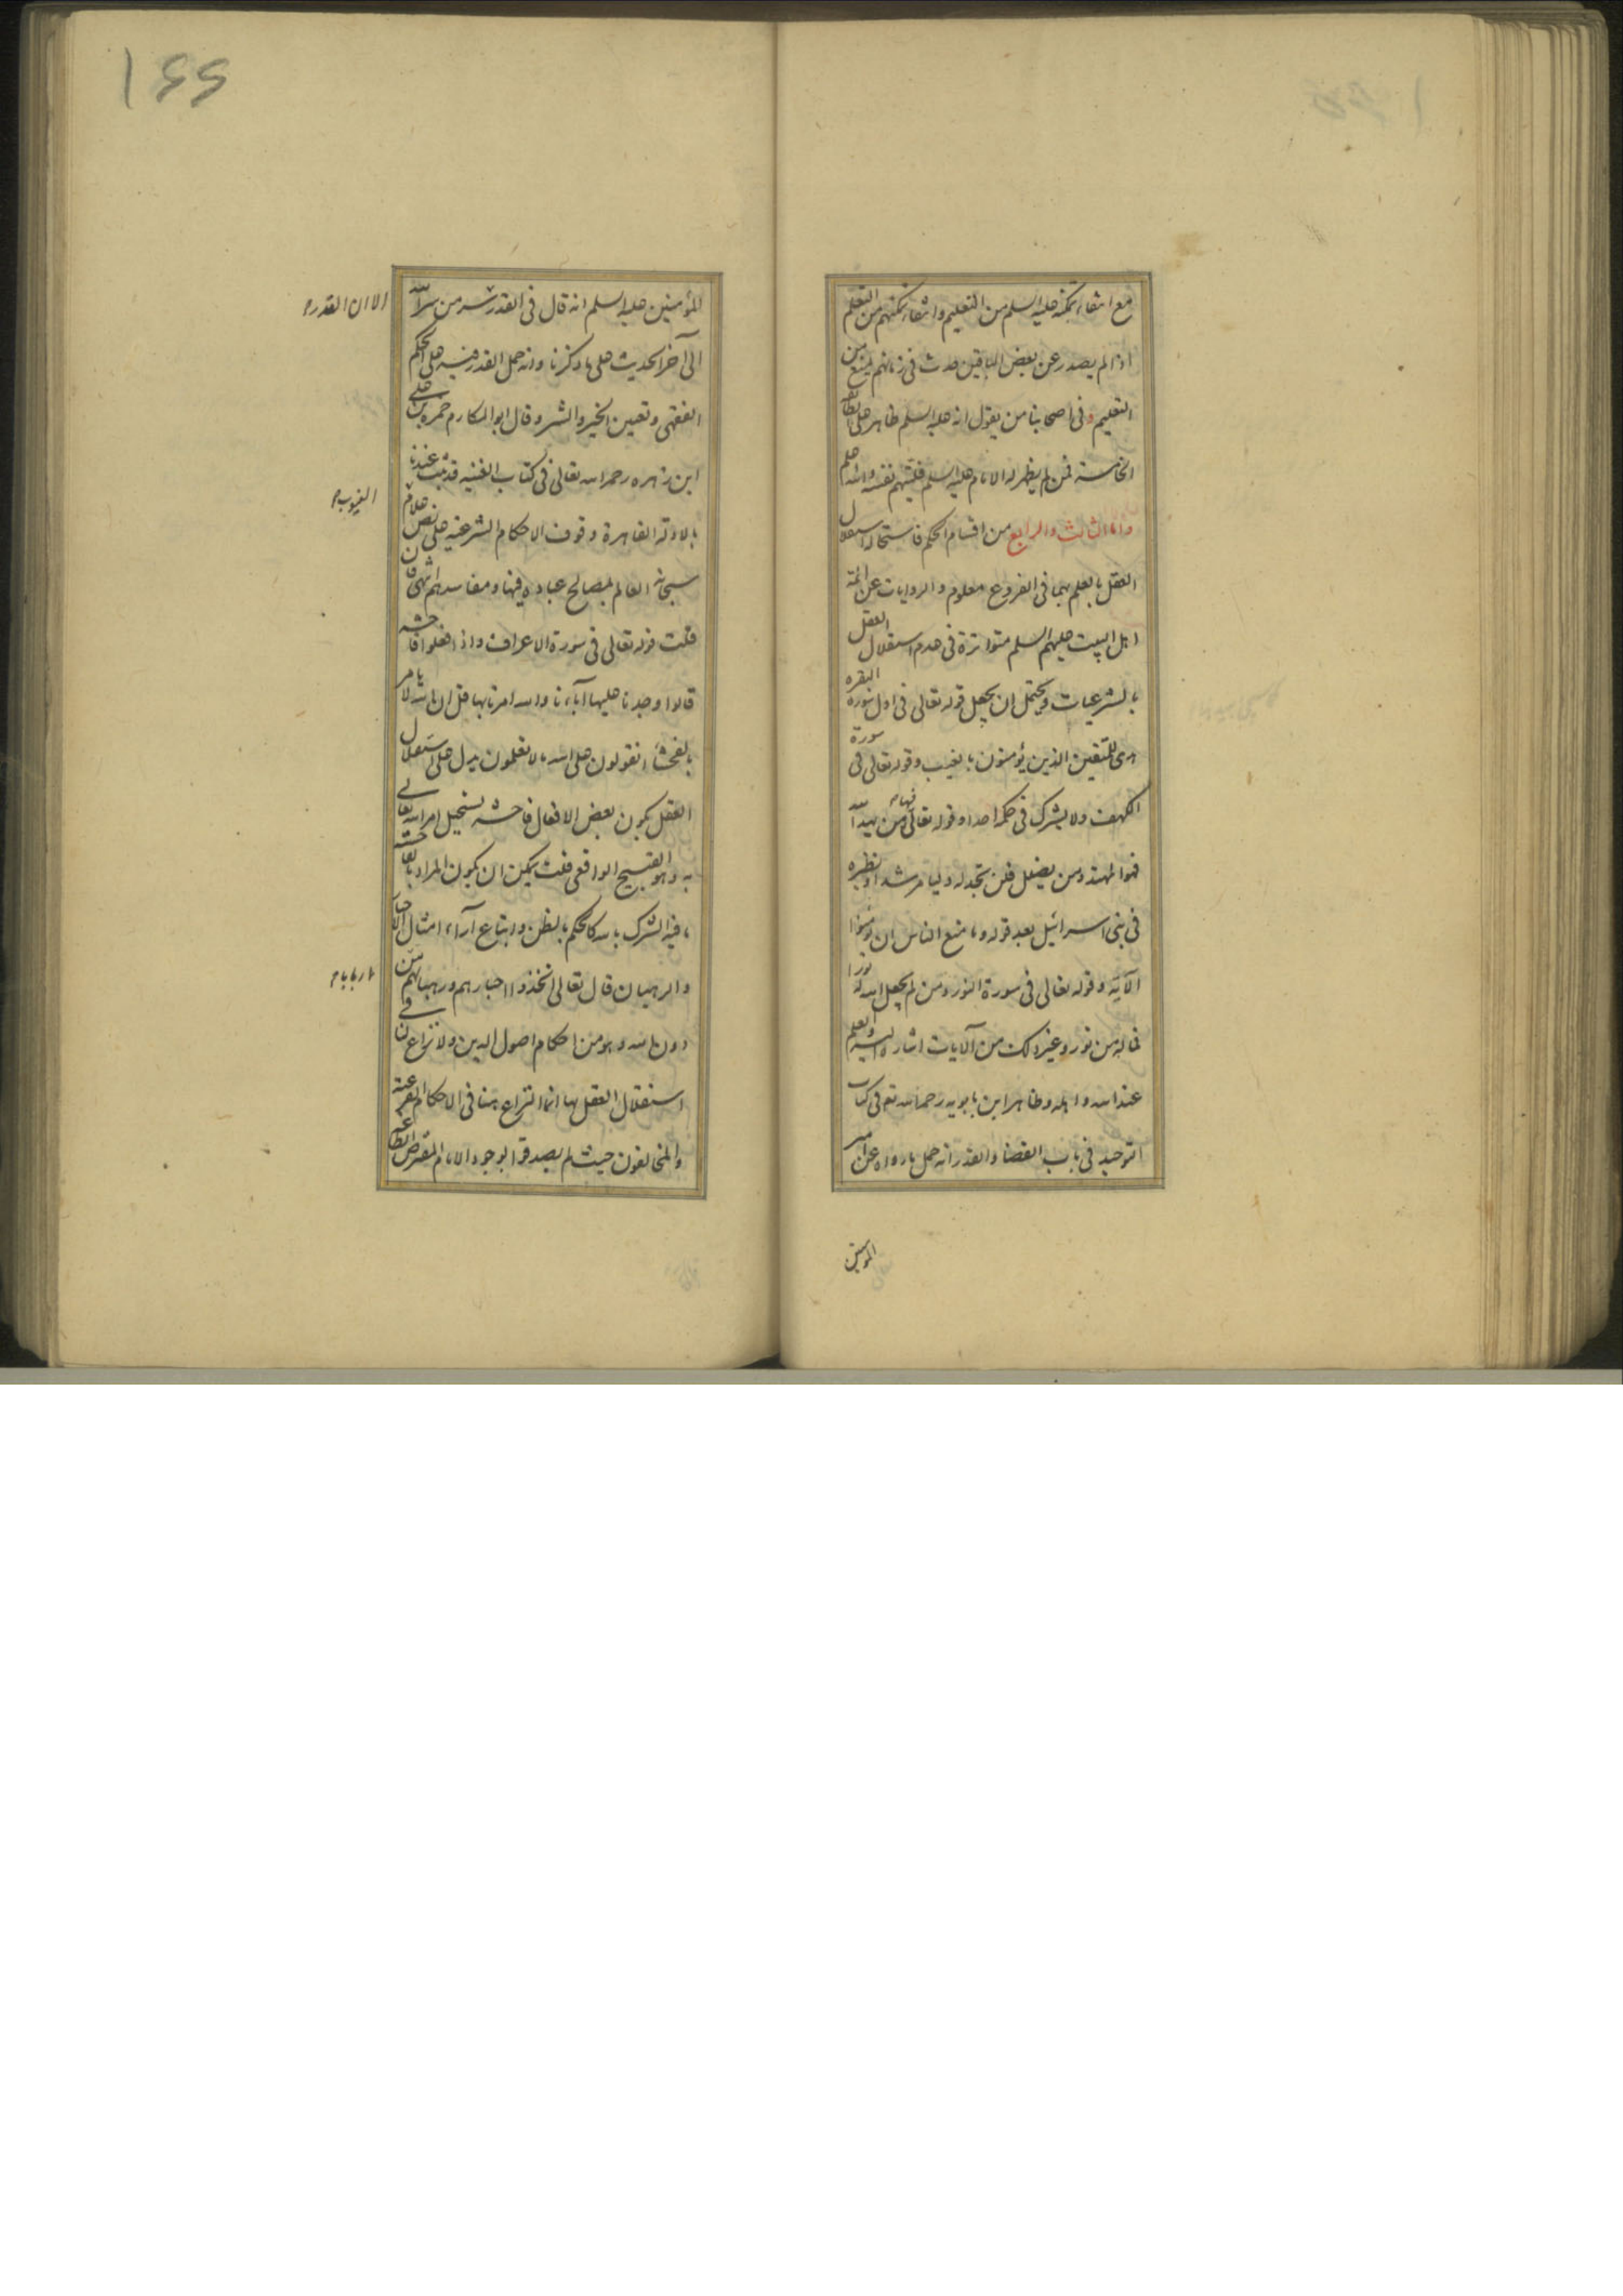 مع انتفاء تمكنه عليه السلم من التعليم وانتفاء تمكنهم من التعلم
اذا لم يصدر عن بعض الباقين حدث فى زمانهم يمنع من
التعليم وفى اصحابنا من يقول انه عليه السلم ظاهر على
الخامسة فمن لم يظهر له الامام عليه السلم فليتهم نفسه والله اعلم
واما الثالث والرابع من اقسام الحكم فاستحالة استقلال
العقل بالعلم بهما فى الفروع معلوم والروايات عن ائمة
اهل البيت عليهم السلم متواترة فى عدم استقلال العقل
بالشرعيات ويحتمل ان يجعل قوله تعالى فى اول سورة البقره
هدى للمتقين الذين يؤمنون بالغيب وقوله تعالى فى سورة
الكهف ولا يشرك فى حكمه احدا وقوله تعالى فيها من يهد الله
فهو المهتد ومن يضلل فلن تجد له وليا مرشدا ونظيره
فى بنى اسرائيل بعد قوله وما منع الناس ان يؤمنوا
الآية وقوله تعالى فى سورة النور ومن لم يجعل الله له نورا
فما له من نور وغير ذلك من الآيات اشارة اليه والعلم
عند الله واهله وظاهر ابن بابويه رحمه الله تع فى كتاب
التوحيد فى باب القضا والقدر انه حمل ما رواه عن امير
المومنين
١٤٤
المؤمنين عليه السلم انه قال فى القدر سر من سر الله
الا ان القدر م
الى آخر الحديث على ما ذكرنا وانه حمل القدر فيه على الحكم
الفقهى وتعيين الخير والشر وقال ابو المكارم حمزه بن على
ابن زهره رحمه الله تعالى فى كتاب الغنيه قد ثبت عندنا
بالادلة القاهرة وقوف الاحكام الشرعيه على نص علام
الغيوب م
سبحانه العالم بمصالح عباده فيها ومفاسدهم انتهى فان
قلت قوله تعالى فى سورة الاعراف واذا فعلوا فاحشه
قالوا وجدنا عليها آباءنا والله امرنا بها قل ان الله لا يامر
بالفحشاء اتقولون على الله ما لا تعلمون يدل على استقلال
العقل بكون بعض الافعال فاحشه يستحيل امر الله تعالى
به وهو القبيح الواقعى قلت يمكن ان يكون المراد بالفاحشه
ما فيه الشرك بالله كالحكم بالظن واتباع آراء امثال الاحبار
والرهبان قال تعالى اتخذوا احبارهم ورهبانهم من
اربابا م
دون الله وهو من احكام اصول الدين ولا نزاع فى ان
استقلال العقل بها انما النزاع هنا فى الاحكام الفرعيه
والمخالفون حيث لم يصدقوا بوجود الامام المفترض الطاعه